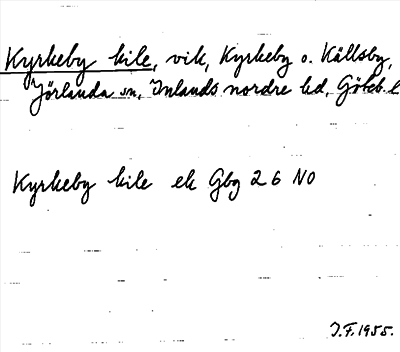 Kyrkeby kile, vik, Kyrkeby o. Källsby,
Jörlanda sn, Inlands nordre hd, Göteb. l
Kyrkeby kile ek Gbg 26 NO
J.F. 1955.